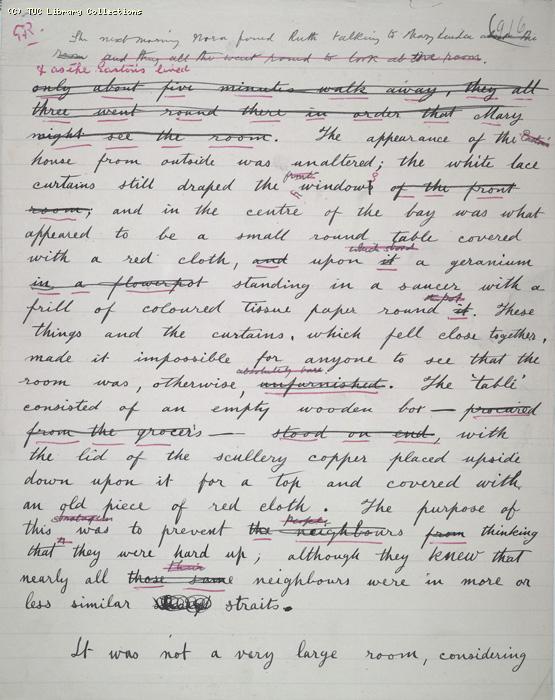 (C) TUC Library Collections
G.R.
916
The next morning Nora found Ruth talking to Mary Linden
room and they all went round to look at the room.
as the Eastons lived
only about five minutes walk away, they all
three went round there in order that Mary
might see the room. The appearance of the
house from outside was unaltered; the white lace
front
curtains still draped the windows of the front
room; and in the centre of the bay was what
appeared to be a small round table covered
which stood
with a red cloth, and upon it a geranium
in a flowerpot standing in a saucer with a
frill of coloured tissue paper round it. These
things and the curtains, which fell close together,
made it impossible for anyone to see that the
absolutely bare
room was, otherwise, unfurnished. The 'table'
consisted of an empty wooden box — procured
from the grocer's — stood on end, with
the lid of the scullery copper placed upside
down upon it for a top and covered with
an old piece of red cloth. The purpose of
stratagem
this was to prevent the neighbours from thinking
that they were hard up; although they knew that
their
nearly all those same neighbours were in more or
less similar straits.
It was not a very large room, considering